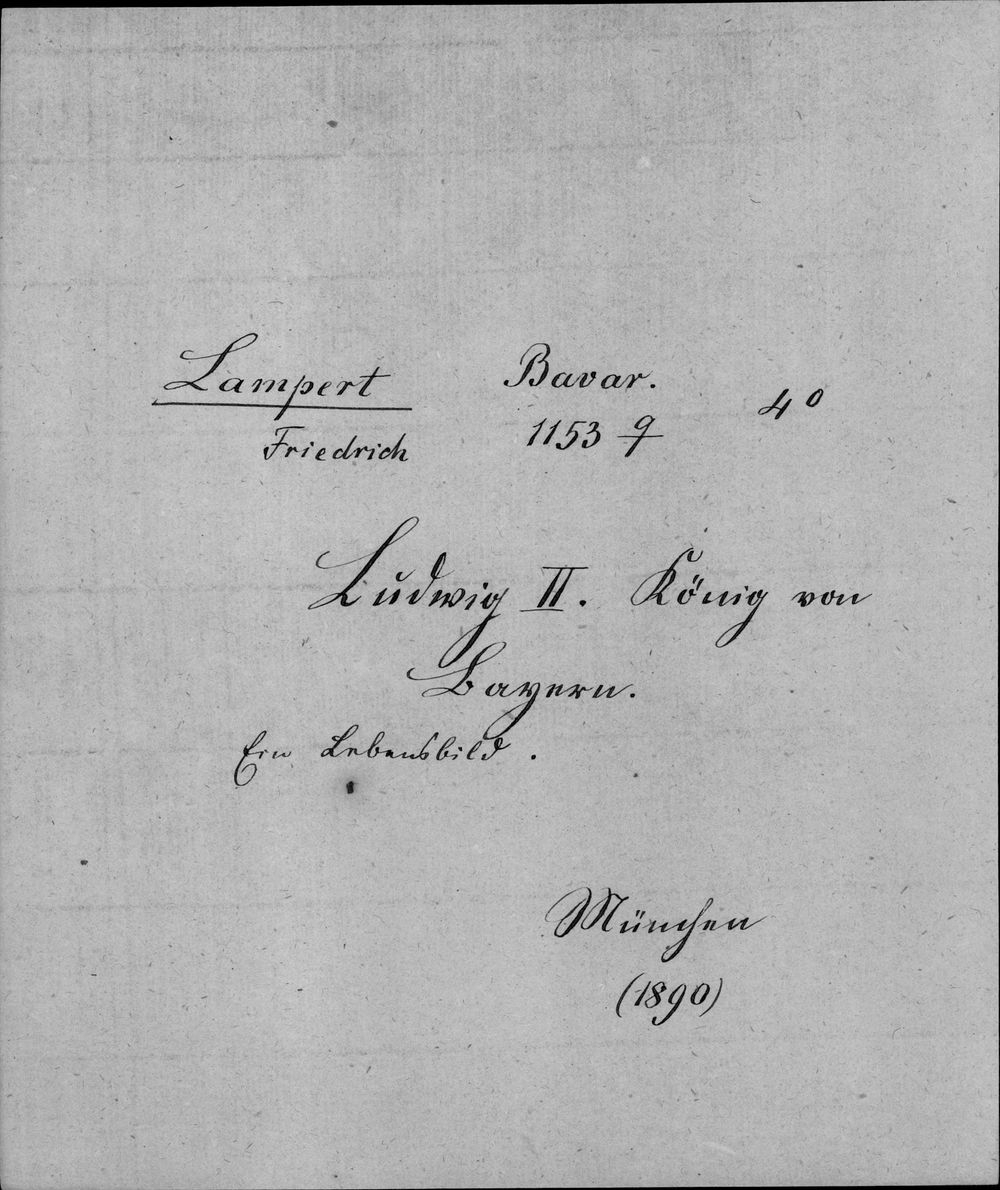 Lampert
Friedrich
Bavar.
1153 q
4°
Ludwig II. König von
Bayern.
Ein Lebensbild.
München
(1890)